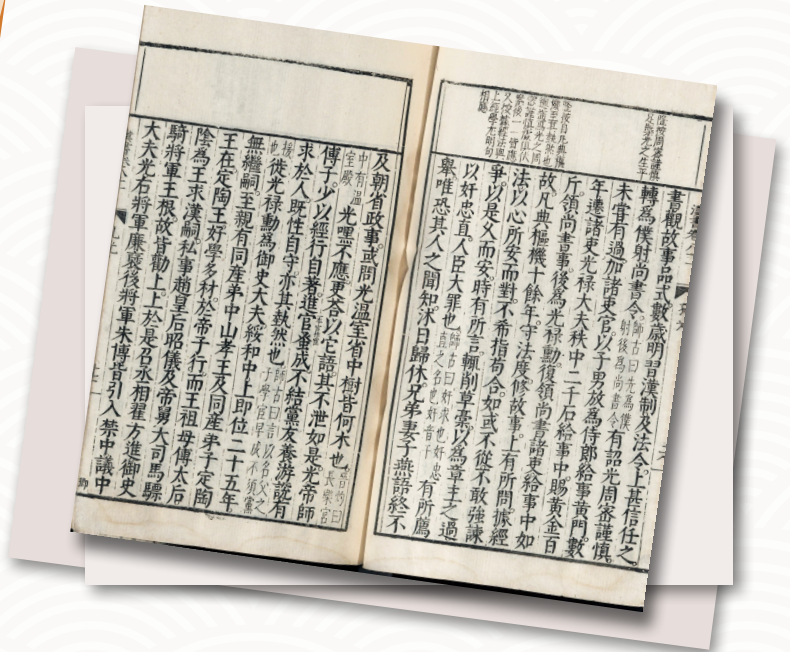 書觀故事品式數歲明習漢制及法令上甚信任之
轉為僕射尚書令師古曰先為僕射後為尚書令有詔光周密謹慎
未嘗有過加諸吏官以子男放為侍郎給事黃門數
年遷諸吏光祿大夫秩中二千石給事中賜黃金百
斤領尚書事後為光祿勳復領尚書諸吏給事中如
故凡典樞機十餘年守法度修故事上有所問據經
法以心所安而對不希指苟合如或不從不敢強諫
爭以是久而安時有所言輒削草稾以為章主之過
以奸忠直人臣大罪也師古曰奸求也奸忠直之名也奸音干有所薦
舉唯恐其人之聞知沐日歸休兄弟妻子燕語終不
及朝省政事或問光溫室省中樹皆何木也晉灼曰長樂宮
中有溫室殿光嘿不應更答以它語其不泄如是光帝師
傅子少以經行自著進官蚤成不結黨友養游說有
求於人既性自守亦其執然也師古曰言以名父之子學官早成不須黨
援也徙光祿勳為御史大夫綏和中上即位二十五年
無繼嗣至親有同產弟中山孝王及同產弟子定陶
王在定陶王好學多材於帝子行而王祖母傅太后
陰為王求漢嗣私事趙皇后昭儀及帝舅大司馬驃
騎將軍王根故皆勸上上於是召丞相翟方進御史
大夫光右將軍廉襃後將軍朱博皆引入禁中議中